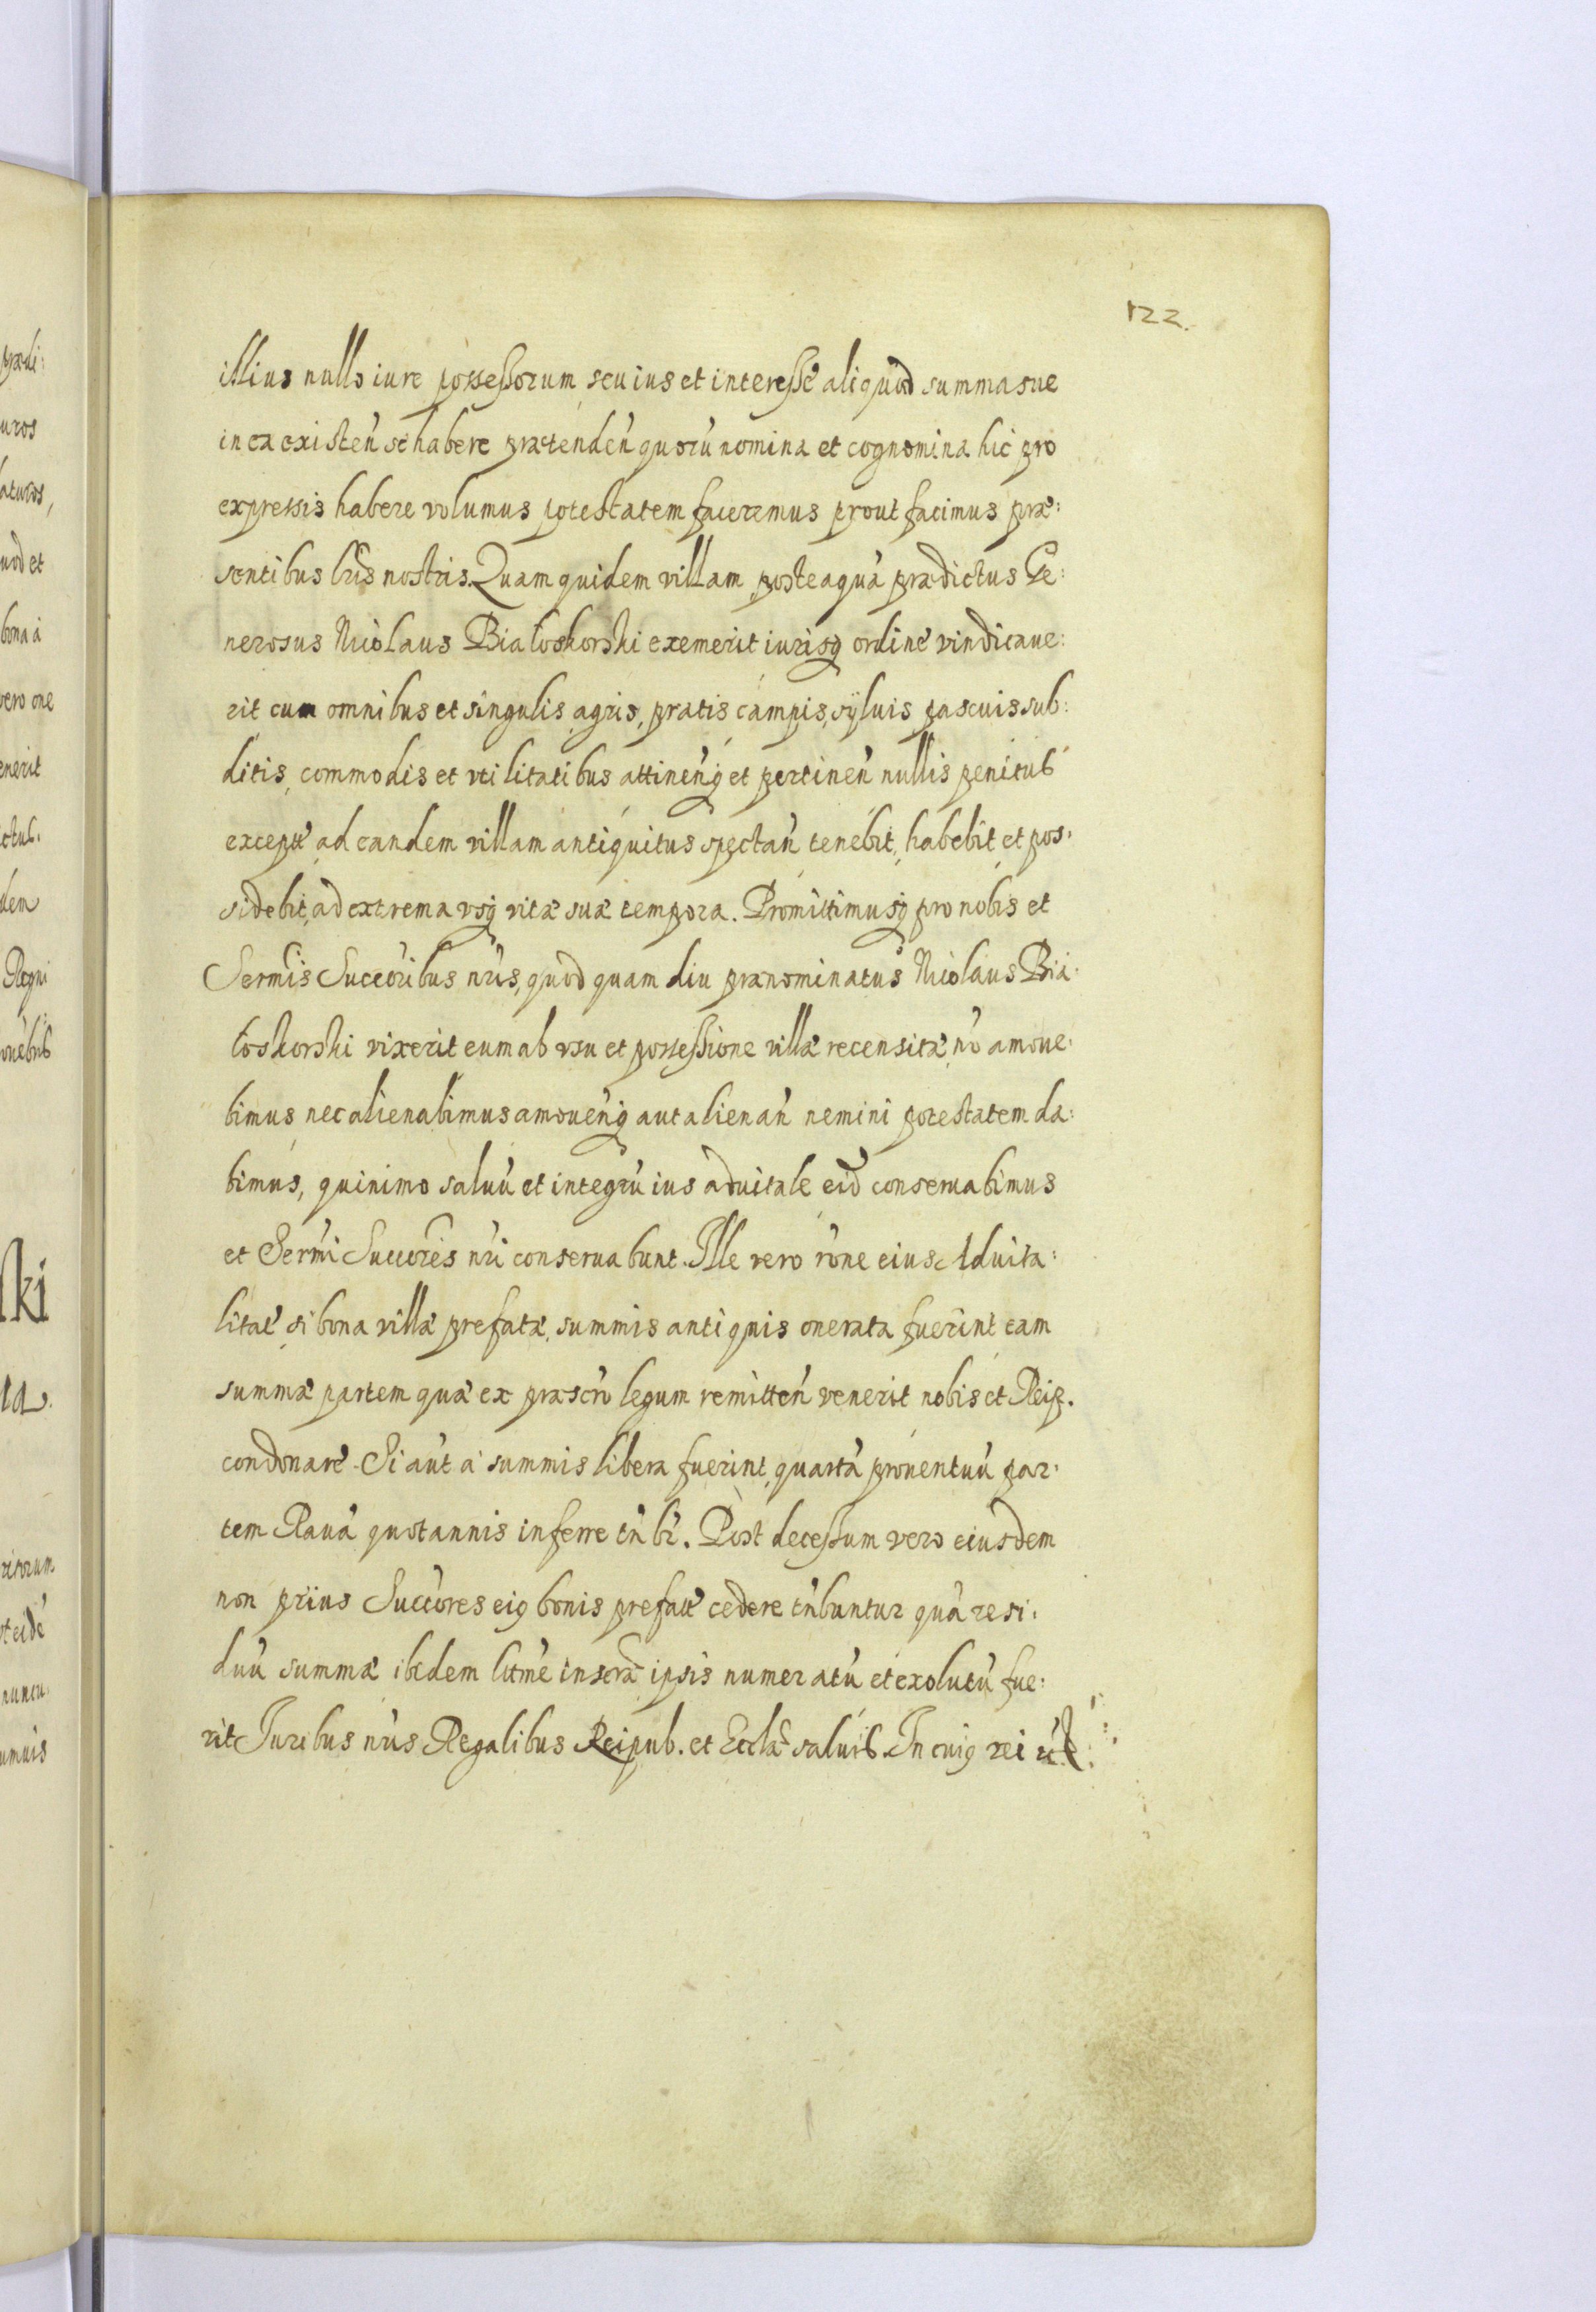 122.
illius nullo iure possessorum, seu ius et interesse aliquod summasue
in ea existen̄ se habere prætenden̄ quorū nomina et cognomina hic pro
expressis habere volumus potestatem faceremus prout facimus præ:
sentibus lr̄is nostris. Quam quidem villam, posteaquā prædictus Ge:
nerosus Nicolaus Białoskorski exemerit iurisq ordinē vindicaue:
rit cum omnibus et singulis agris, pratis campis, syluis pascuis sub:
ditis, commodis et vtilitatibus attinen̄q et pertinen̄ nullis penitus
except̄ ad eandem villam antiquitus spectan̄ tenebit, habebit et pos:
sidebit, ad extrema vsq vitæ suæ tempora. Promittimusq pro nobis et
Serm̄is Succōribus nr̄is, quod quam diu prænominatus Nicolaus Bia:
łoskorski vixerit eum ab vsu et possessione villæ recensitæ, nō amoue:
bimus nec alienabimus amouen̄q aut alienan̄ nemini potestatem da:
bimus, quinimo saluū et integrū ius aduitale eid̄ conseruabimus
et Serm̄i Succōres nr̄i conseruabunt. Ille vero rōne eius Aduita:
litat̄, si bona villæ prefatæ, summis antiquis onerata fuerint eam
summæ partem quæ ex præscr̄o legum remitten̄ venerit nobis et Reip.
condonare. Si aūt a summis libera fuerint, quartā prouentuū par:
tem Rauā quotannis inferre tn̄br̄. Post decessum vero eiusdem
non prius Succōres eiq bonis prefat̄ cedere tn̄buntur quā resi:
duū summæ ibidem litm̄e inscrā ipsis numeratū et exolutū fue:
rit Juribus nr̄is Regalibus Reipub. et Ecclæ saluis. In cuiq rei